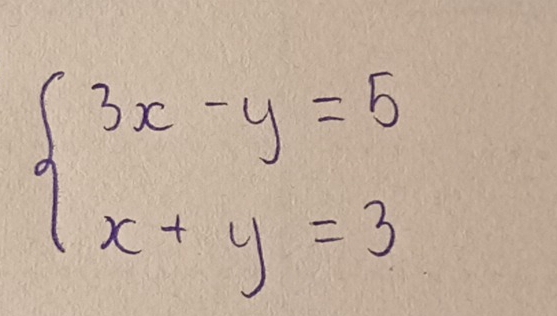 3x - y = 5
x + y = 3